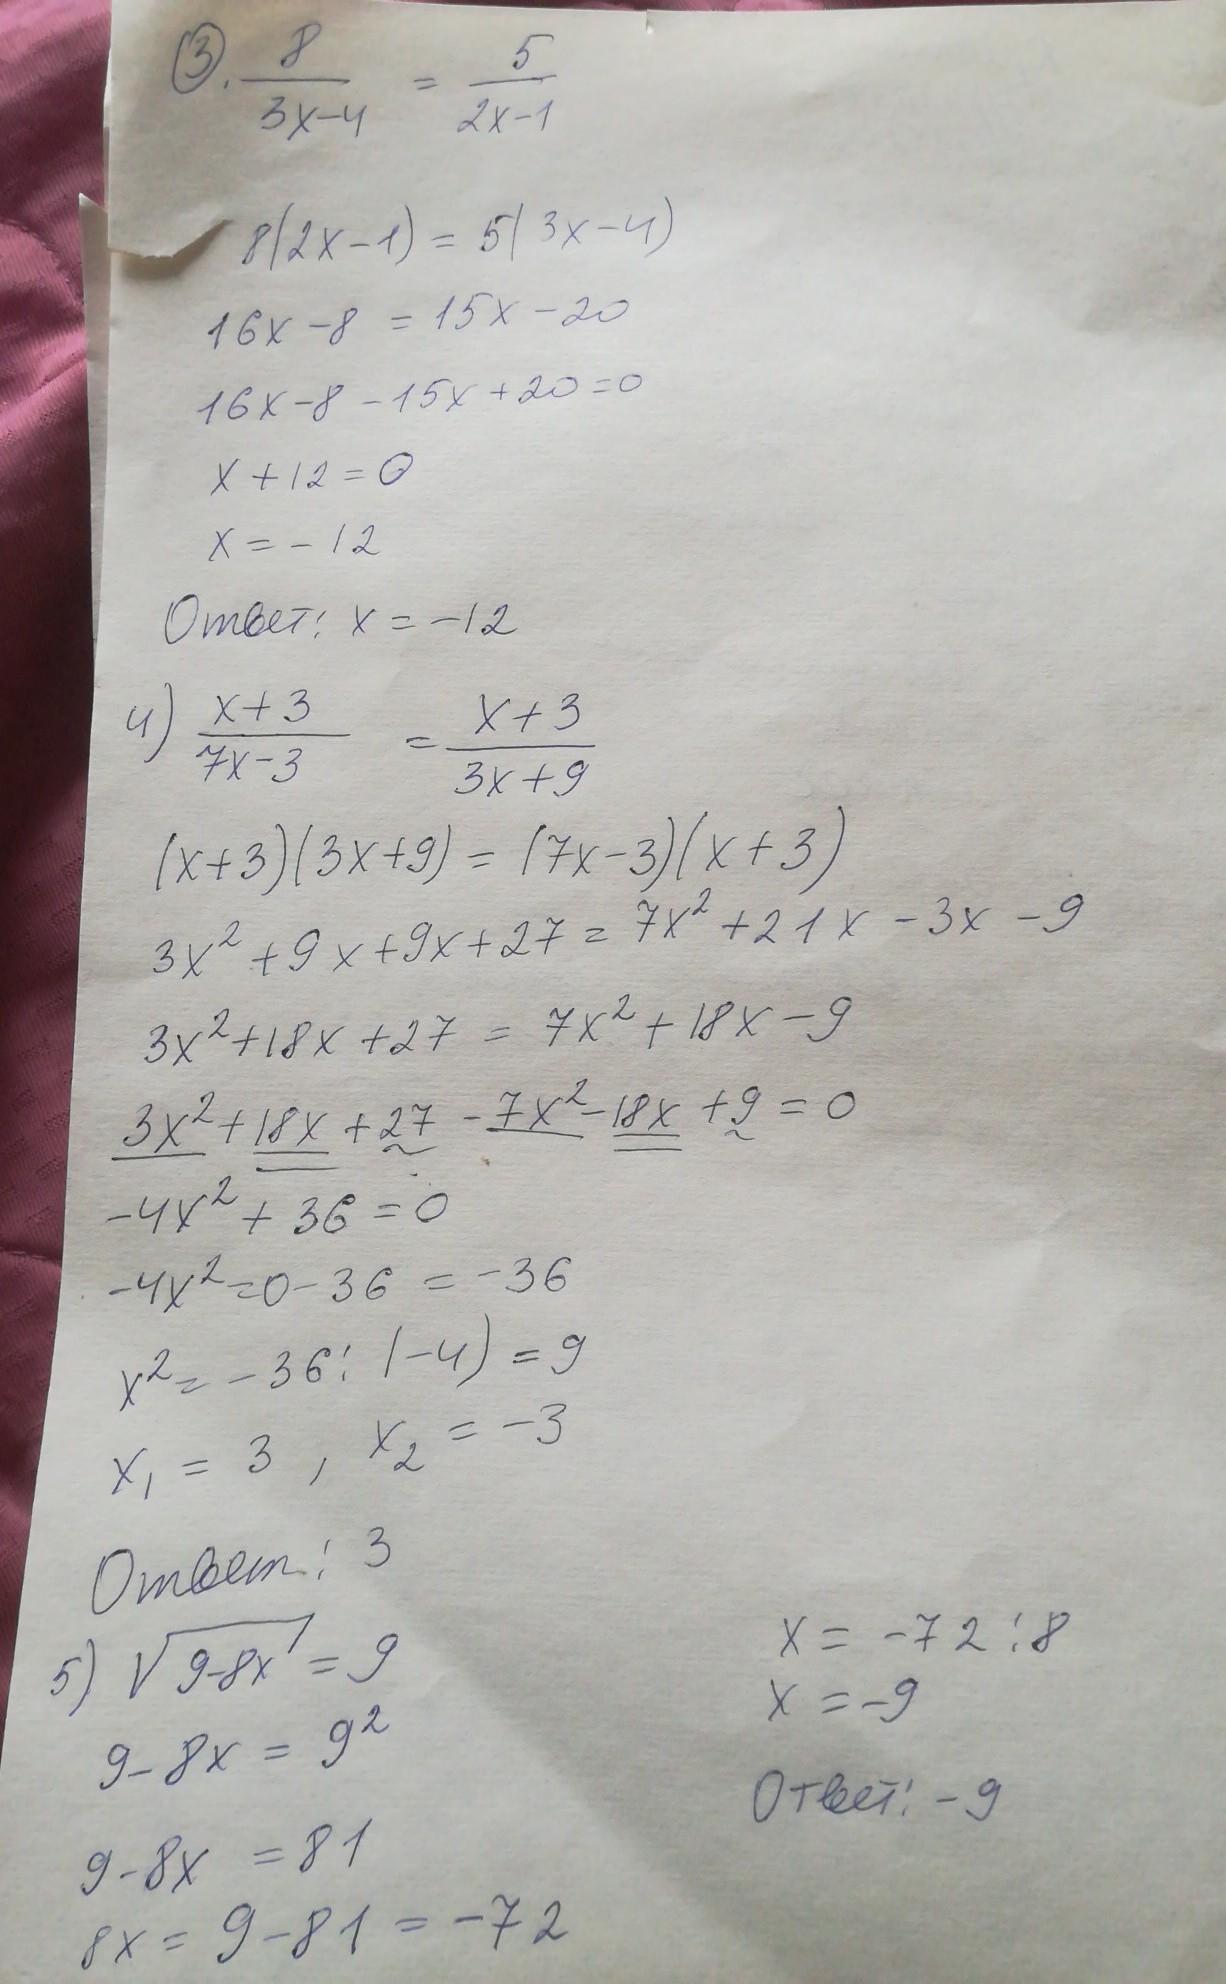 3. 8/(3x-4) = 5/(2x-1)
8(2x-1) = 5(3x-4)
16x-8 = 15x-20
16x-8-15x+20=0
x+12=0
x=-12
Ответ: x=-12
4) (x+3)/(7x-3) = (x+3)/(3x+9)
(x+3)(3x+9) = (7x-3)(x+3)
3x²+9x+9x+27=7x²+21x-3x-9
3x²+18x+27 = 7x²+18x-9
3x²+18x+27-7x²-18x+9=0
-4x²+36=0
-4x²=0-36=-36
x²=-36:(-4)=9
x₁=3, x₂=-3
Ответ: 3
5) √(9-8x)=9
9-8x=9²
9-8x=81
8x=9-81=-72
x=-72:8
x=-9
Ответ: -9